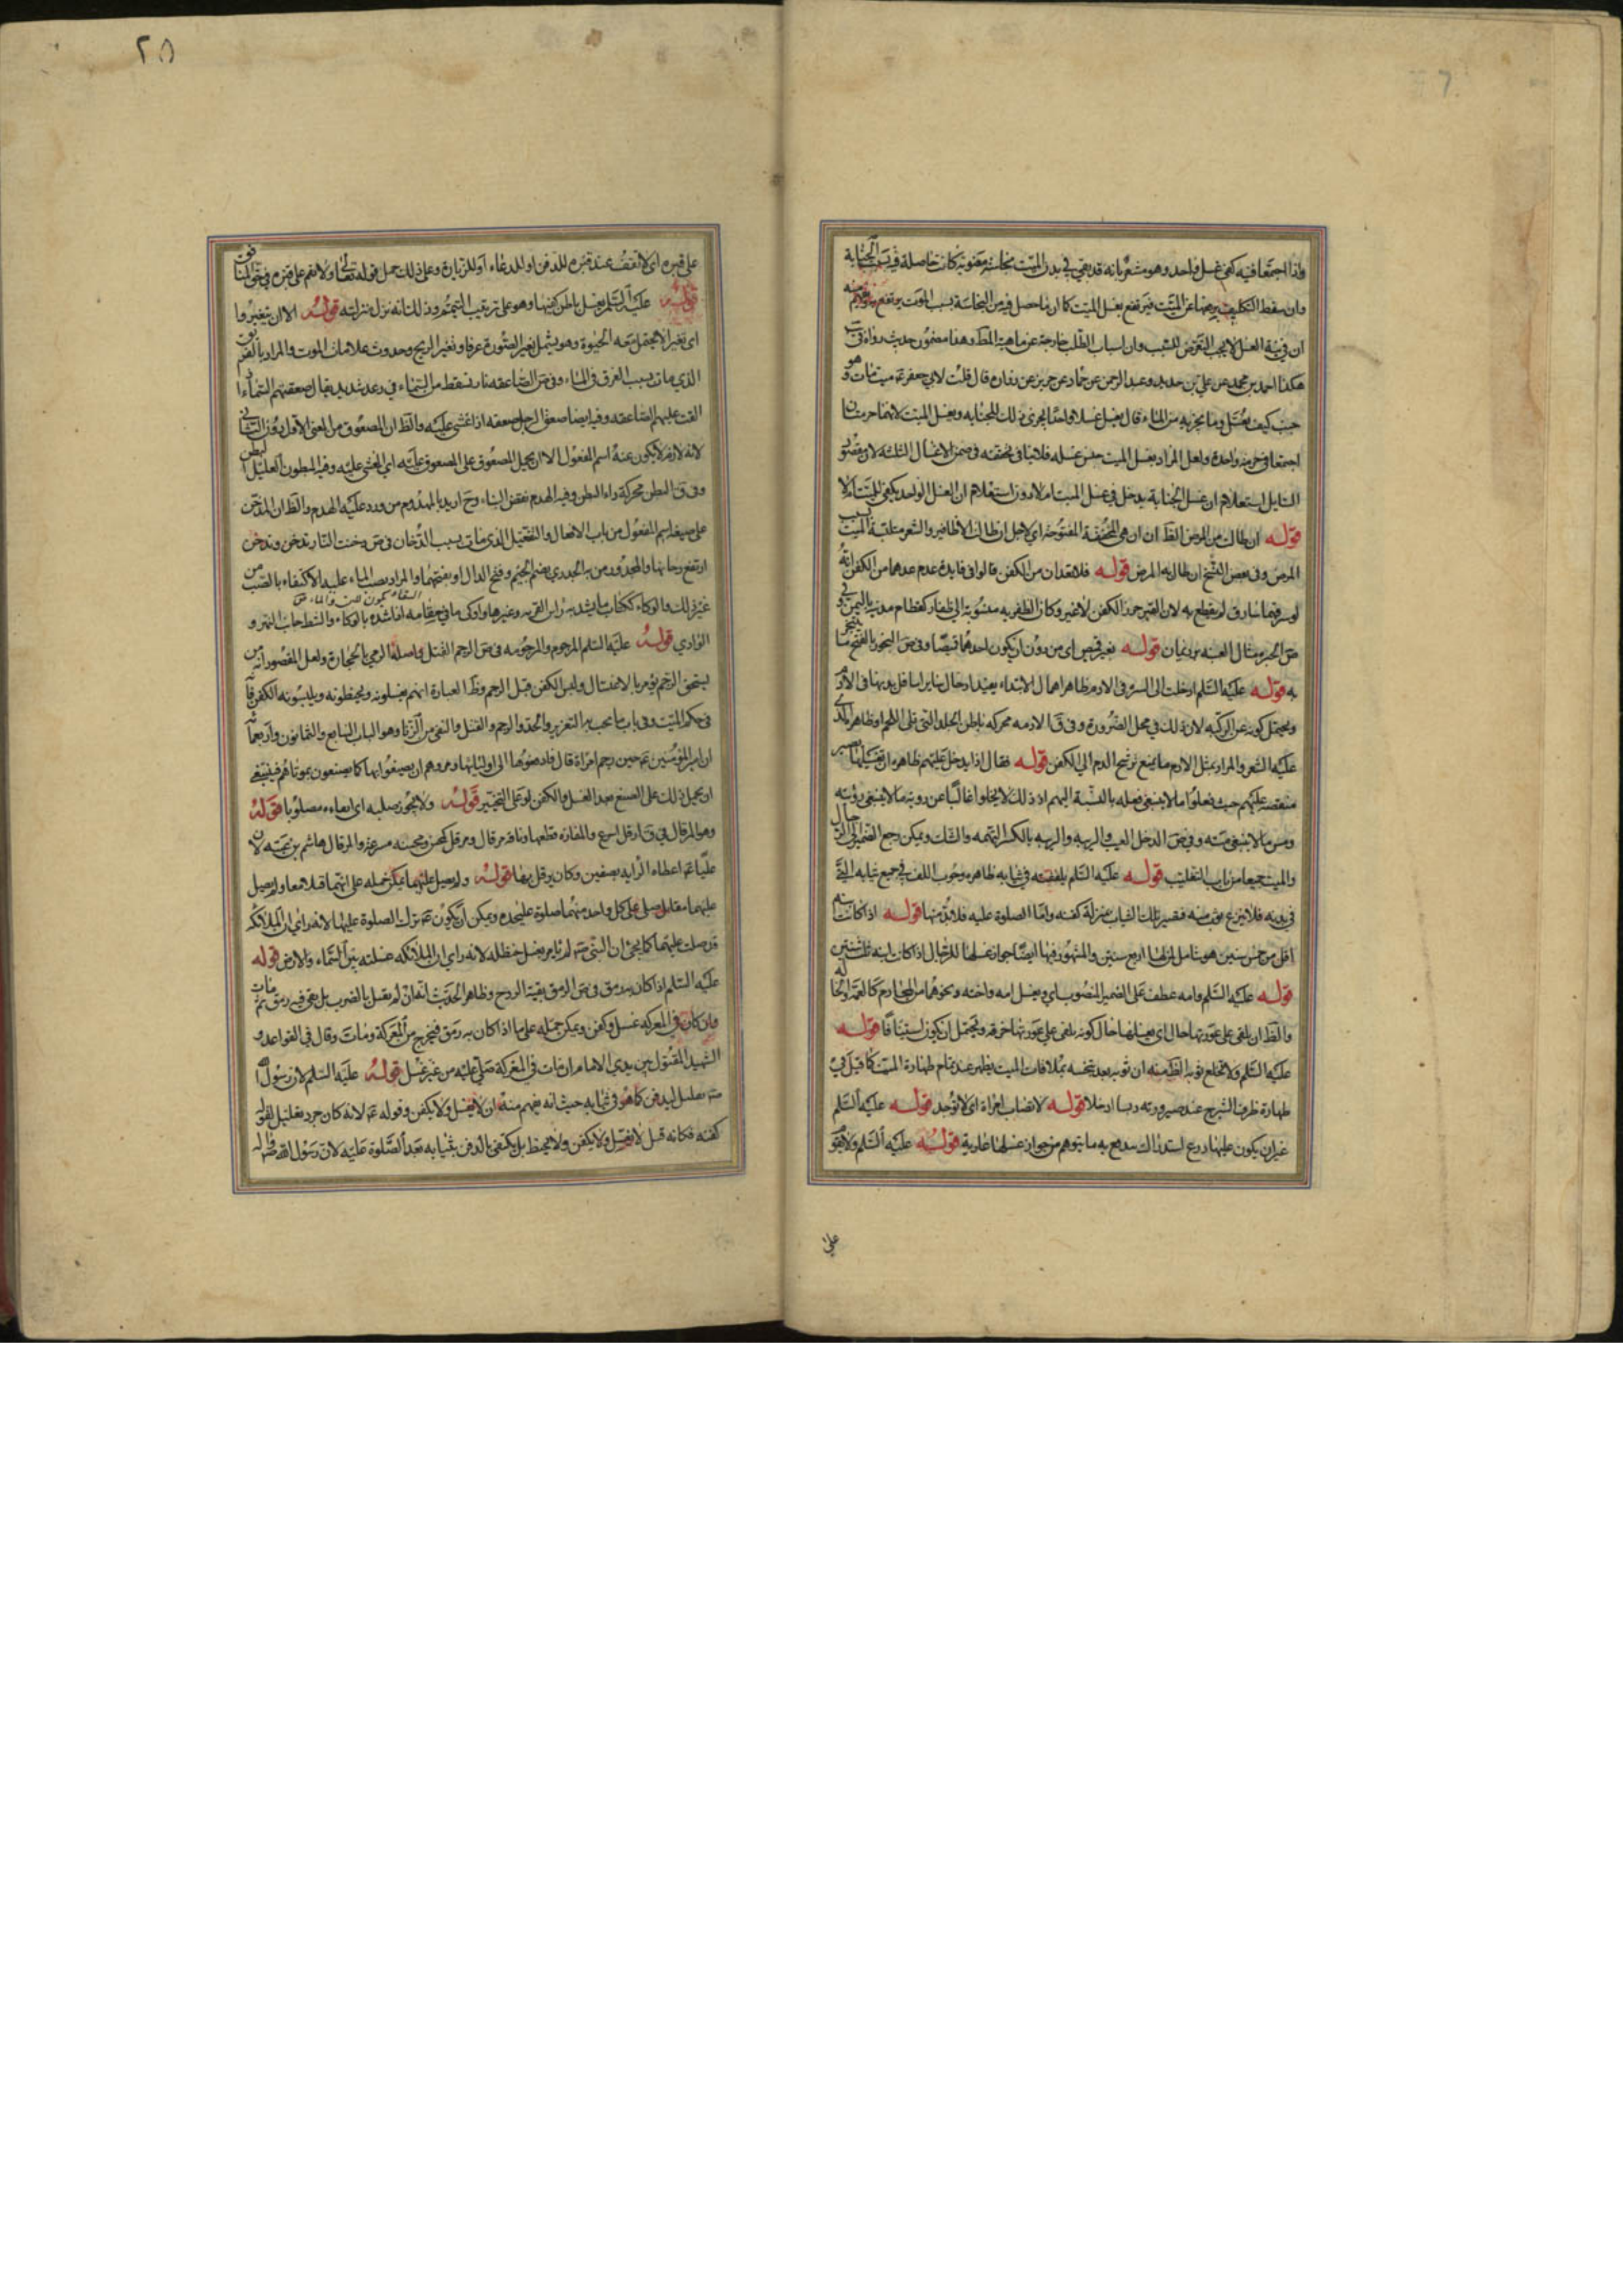 واذا اجتمعا فيه كفى غسل واحد وهو مشعر بانه قد بقي في بدن الميت نجاسة معنوية كانت حاصلة في الجنابة
وان سقط التكليف عن الميت فيرتفع بغسل الميت كما ان ما حصل فيه من النجاسة بسبب الموت يرتفع به
ان في نية الغسل لا يجب التعرض للسبب وان اسباب الطلب خارجة عن ماهية المط وهذا مضمون حديث رواه في يب
هكذا احمد بن محمد عن علي بن حديد وعبد الرحمن عن حماد عن حريز عن زرارة قال قلت لابي جعفر ع ميت مات وهو
جنب كيف يغسل وما يجزيه من الماء قال يغسل غسلا واحدا يجزى ذلك للجنابة ويغسل الميت لانهما حرمتان
اجتمعا في حرمة واحدة ولعل المراد بغسل الميت جنس غسله فلا ينافي تحققه في ضمن الاغسال الثلثة لان مقصود
السايل استعلام ان غسل الجنابة يدخل في غسل الميت ام لا دون استعلام ان الغسل الواحد يكفي للميت ام لا
قوله ان طال من المرض الظ ان ان هي المخففة المفتوحة اي لاجل ان طالت الاظافير والشعر متلبة الميت بسبب
المرض وفي بعض النسخ ان طال به المرض قوله فلا تعدان من الكفن قالوا فايدة عدم عدهما من الكفن انه
لو سرقهما سارق لم يقطع به لان القبر حرز الكفن لا غير وكان الظفرية منسوبة الى ظفار كقطام مدينة باليمن وفي
ص الحبرة مثال العنبة برد يمان قوله بغير قميص اي من دون ان يكون احدهما قميصا وفي ص البخور بالفتح ما يتبخر
به قوله عليه السلام
عليه الشعر والمراد بمثل الادم ما يمنع ترشح الدم الى الكفن قوله فقال اذا يدخل عليهم ظاهره ان تغسيلها يصير
منقصة عليهم حيث فعلوا ما لا ينبغي فعله بالنسبة اليهم اذ ذلك لا يخلوا غالبا عن روية ما لا ينبغي رؤيته
ومس ما لا ينبغي مسه وفي ص الدخل العيب والريبة والريبة بالكسر التهمة والشك ويمكن رجع الضمير الى الرجال
والميت جميعا من باب التغليب قوله عليه السلم يلففنه في ثيابه ظاهره وجوب اللف في جميع ثيابه التي
في بدنه فلا ينزع عنه شيء منه فتصير تلك الثياب بمنزلة كفنه واما الصلوة عليه فلا بد منها قوله اذا كانت بنت
اقل من خمس سنين هو شامل لمن لها اربع سنين والمشهور فيها ايضا جواز غسلها للرجال اذا كان ابنه ثلث سنين
قوله عليه السلم وامه عطف على الضمير المنصوب اي ويغسل امه واخته ونحوهما من المحارم كالعمة والخالة
والظ ان يلقى على عورتها حال اي يغسلها حال كونه يلقى على عورتها خرقة ويحتمل ان يكون استينافا قوله
عليه السلم ولا تخلع ثوبه الظ منه ان ثوبه بعد تنجسه بملاقات الميت يطهر عند تمام طهارة الميت كما قيل في
طهارة ظرف الشيرج عند صيرورته دبسا او خلا قوله لا تصاب امراة اي لا توجد قوله عليه السلم
غير ان يكون عليها درع استدراك يندفع به ما يتوهم من جواز غسلها عارية قوله عليه السلم ولا تقم
على
٢٥
على قبره اي لا تقف عند قبره للدفن او للدعاء او للزيارة وعلى ذلك حمل قوله تعالى ولا تقم على قبره في حق المنافقين
قوله عليه السلم يغسل باطن كفيها وهو على ترتيب التيمم وذلك انه نزل منزلته قوله الا ان يتغيروا
اي تغيرا لا يحتمل معه الحيوة وهو يشمل تغير الصورة عرفا وتغير الريح وحدوث علامات الموت والمراد بالغريق
الذي مات بسبب الغرق في الماء وفي ص الصاعقة نار تسقط من السماء في رعد شديد يقال صعقتهم السماء اذا
القت عليهم الصاعقة وفيه ايضا صعق الرجل صعقة اذا غشي عليه والظ ان المصعوق من المعنى الاول دون الثاني
لانه لازم لا يكون عنه اسم المفعول الا ان يحمل المصعوق على المصعوق عليه اي المغشي عليه وفيه المبطون العليل البطن
وفي ق البطن محركة داء البطن وفيه الهدم نقض البناء وح اريد بالمهدوم من ورد عليه الهدم والظ ان المدخن
على صيغة اسم المفعول من باب الافعال والتفعيل الذي مات بسبب الدخان في ص دخنت النار تدخن وتدخن
ارتفع دخانها والمجدور من به الجدري بضم الجيم وفتح الدال او بفتحهما والمراد بصب الماء عليه الاكتفاء بالصب من
السقاء يكون للبن والماء ص
غير ذلك والوكاء ككتاب ما يشد به راس القربة وغيرها واوكى ما في سقائه اذا شده بالوكاء والشط جانب النهر و
الوادي قوله عليه السلم المرجوم والمرجومة في ص الرجم القتل واصله الرمي بالحجارة ولعل المقصود انه من
يستحق الرجم يؤمر بالاغتسال ولبس الكفن قبل الرجم وظ العبارة انهم يغسلونه ويحنطونه ويلبسونه الكفن
في حكم الميت وفي باب ما يجب به التعزير والحد والرجم والقتل والنفي من الزنا وهو الباب السابع والثمانون واربعمائة
ان امير المؤمنين ع حين رجم امراة قال فادفعوها الى اوليائها ومروهم ان يصنعوا بها كما يصنعون بموتاهم فينبغي
ان يحمل ذلك على الصنع بعد الغسل والكفن لو على التخيير قوله ولا يجوز صلبه اي ابقاءه مصلوبا قوله
وهو المرقال في ق ارقل اسرع والمفازة قطعها وناقة مرقال ومرقل كمحسن ومحسنة مسرعة والمرقال هاشم بن عتبة لان
عليا ع اعطاه الراية بصفين وكان يرقل بها قوله ولم يصل عليهما يمكن حمله على انهما قتلا معا ولم يصل
عليهما مقابل صلى على كل واحد منهما صلوة عليحدة ويمكن ان يكون ع ترك الصلوة عليهما لانه راى ان الملائكة
قد صلت عليهما كما يجئ ان النبي ص لم يامر بغسل حنظلة لانه راى ان الملائكة غسلته بين السماء والارض قوله
عليه السلم اذا كان به رمق في ص الرمق بقية الروح وظاهر الحديث انه ان لم يقتل بالضرب بل بقي فيه رمق ثم مات
وان كان في المعركة غسل وكفن ويمكن حمله على ما اذا كان به رمق فيخرج من المعركة ومات وقال في القواعد و
الشهيد المقتول بين يدي الامام ان مات في المعركة صلي عليه من غير غسل قوله عليه السلم لان رسول الله
ص تعليل ليدفن كما هو في ثيابه حيث انه يفهم منه ان لا يغسل ولا يكفن وقوله ع لانه كان جرد تعليل لقوله
كفنه فكانه قيل لا يغسل ولا يكفن ولا يحنط بل يكتفى بالدفن بثيابه بعد الصلوة عليه لان رسول الله ص